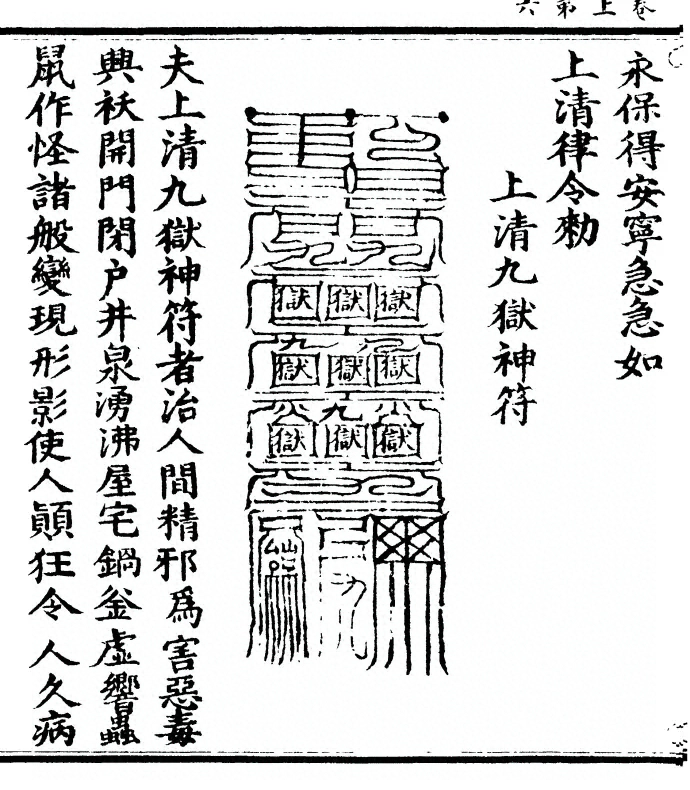 卷上第六
永保得安寧急急如
上清律令勑
上清九獄神符
獄獄獄
九
獄獄獄
九
獄獄獄
夫上清九獄神符者治人間精邪爲害惡毒
興祅開門閉户井泉湧沸屋宅鍋釜虛響蟲
鼠作怪諸般變現形影使人顚狂令人久病